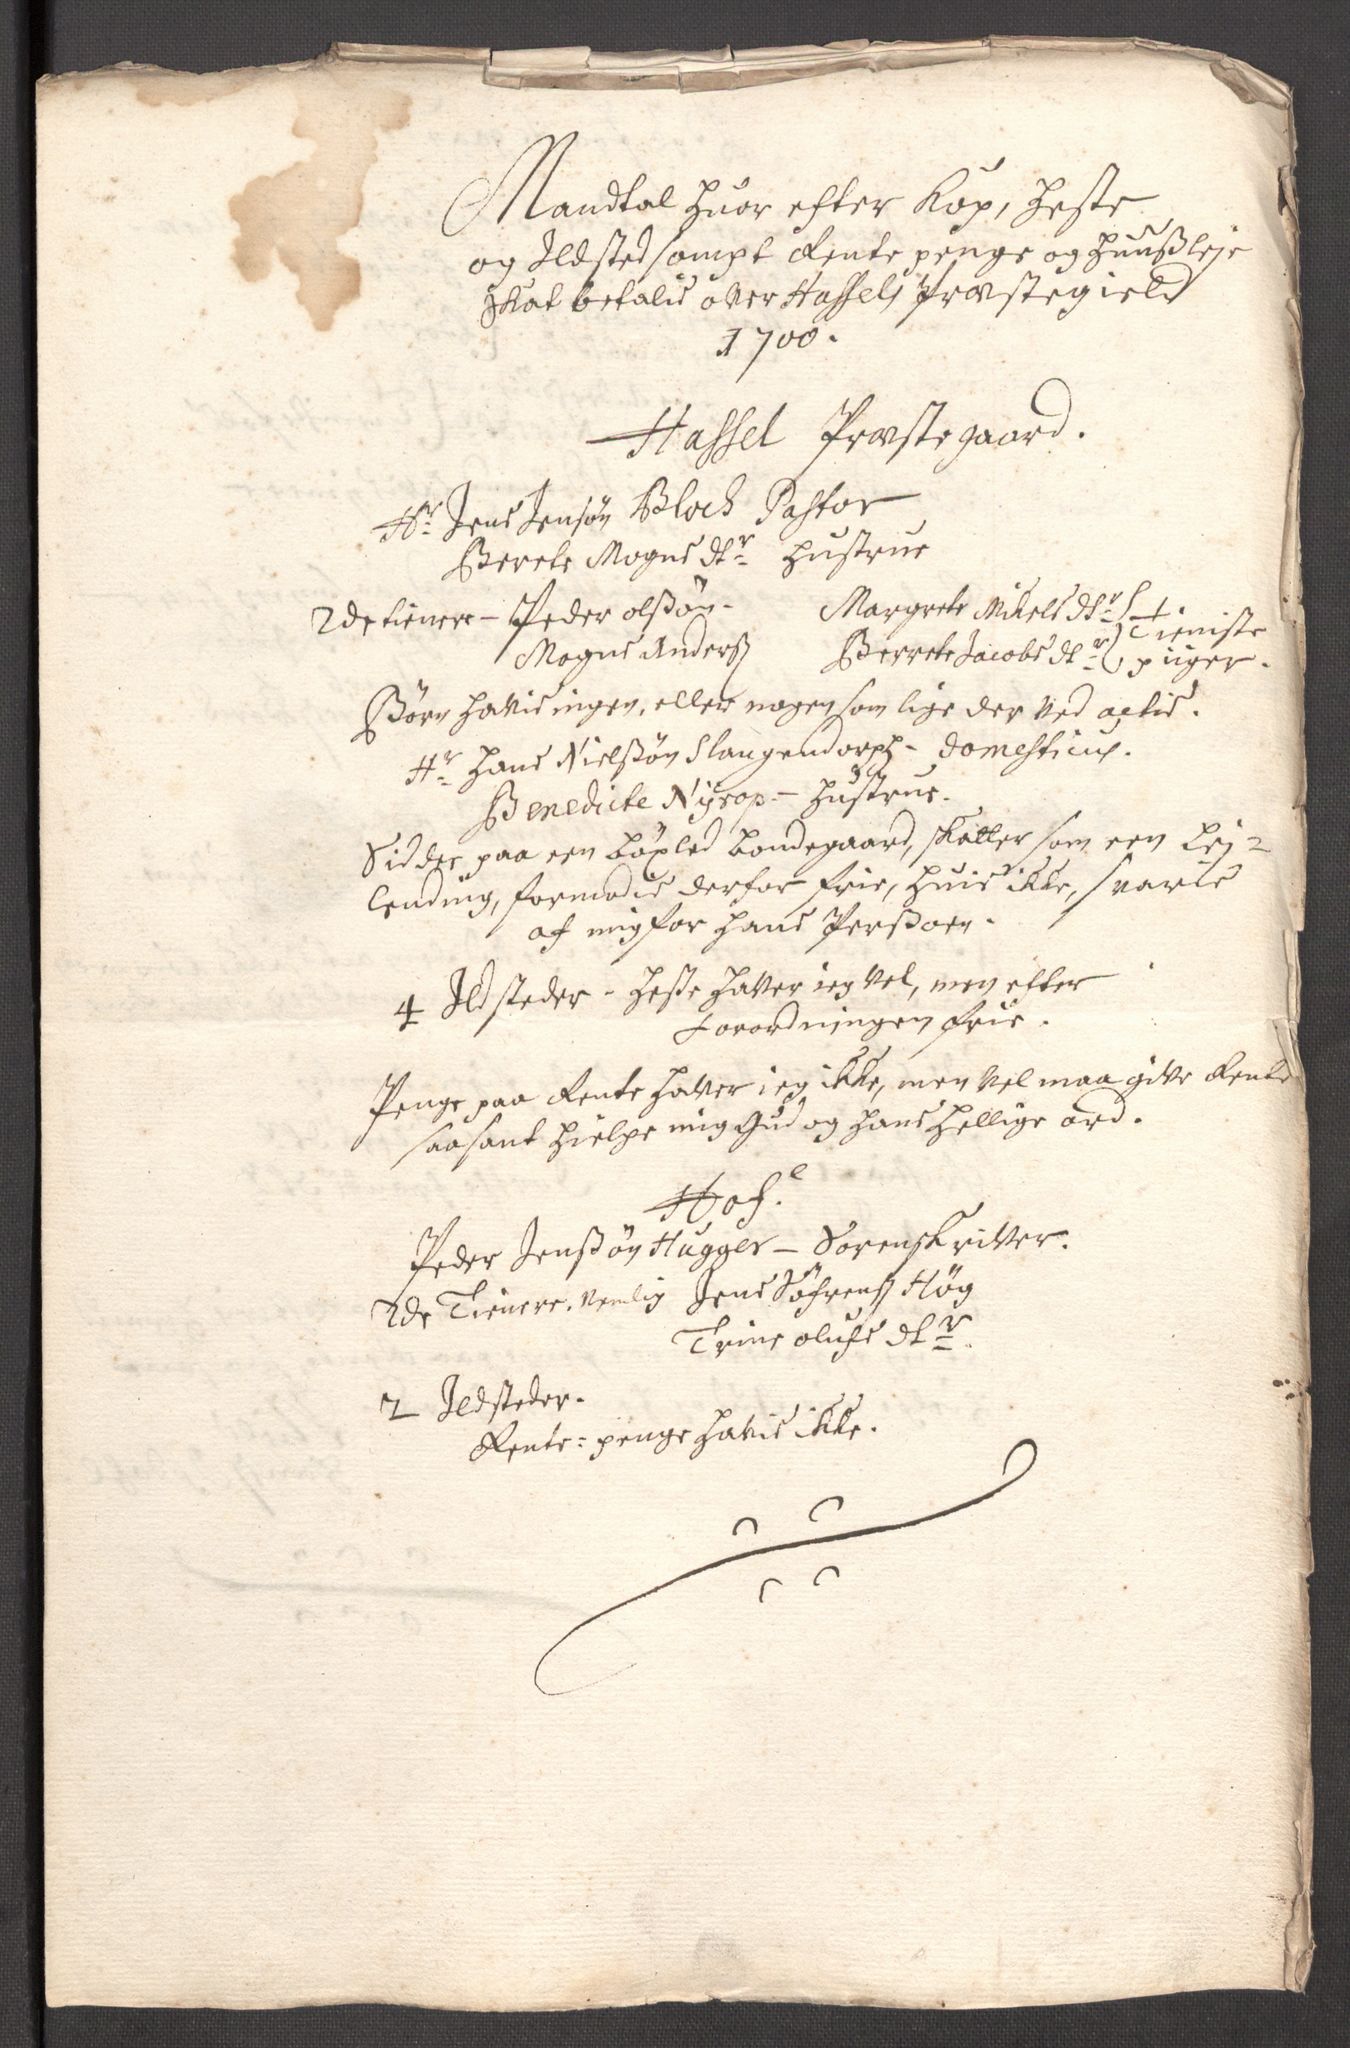 Mandtal huor efter Kop, heste
og Ildsted sampt Rente penge og huußleje
skat betalis over Hassels Præstegield
1700.
Hassel Præstegaard.
Hr. Jens Jensøn Bloch Pastor
Berete Mogns dtr. hustrue
2de tienere - Peder olßøn - Margrete Nikels dtr. Tieniste
Mogns Anderß Berrete Jacobs dtr. piiger.
Børn havis ingen, eller nogen som lige der ved actis.
Hr. Hans Nielßøn Slangendorph - domesticus.
Benedicte Nyrop - hustrue.
Sidder paa een böxled bondegaard, skatter som een Lej-
lending, formodis derfor frie, huis ikke, svaris
af mig for hans Perßoen.
4 Ildsteder - heste haver ieg vel, men efter
forordningen frie.
Penge paa Rente haver ieg ikke, men vel maa give Rente
saa sant hielpe mig Gud og hans hellige ord.
Hof.
Peder Jenßøn Hugger - Sorenskriver.
2de Tienere. Nemlig Jens Söfrenß Høg
Trine olufs dtr.
2 Ildsteder.
Rente-penge havis ikke.